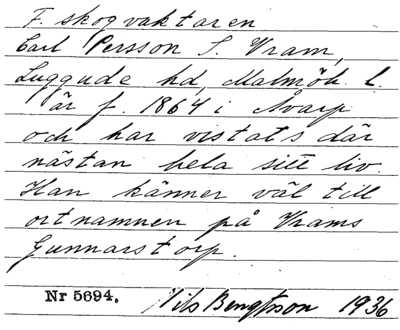 F. skogvaktaren
Carl Persson S. Vram,
Luggude hd, Malmöh. l.
är f. 1864 i Åvarp
och har vistats där
nästan hela sitt liv.
Han känner väl till
ortnamnen på Vrams
Gunnarstorp.
Nr 5694. Nils Bengtsson 1936